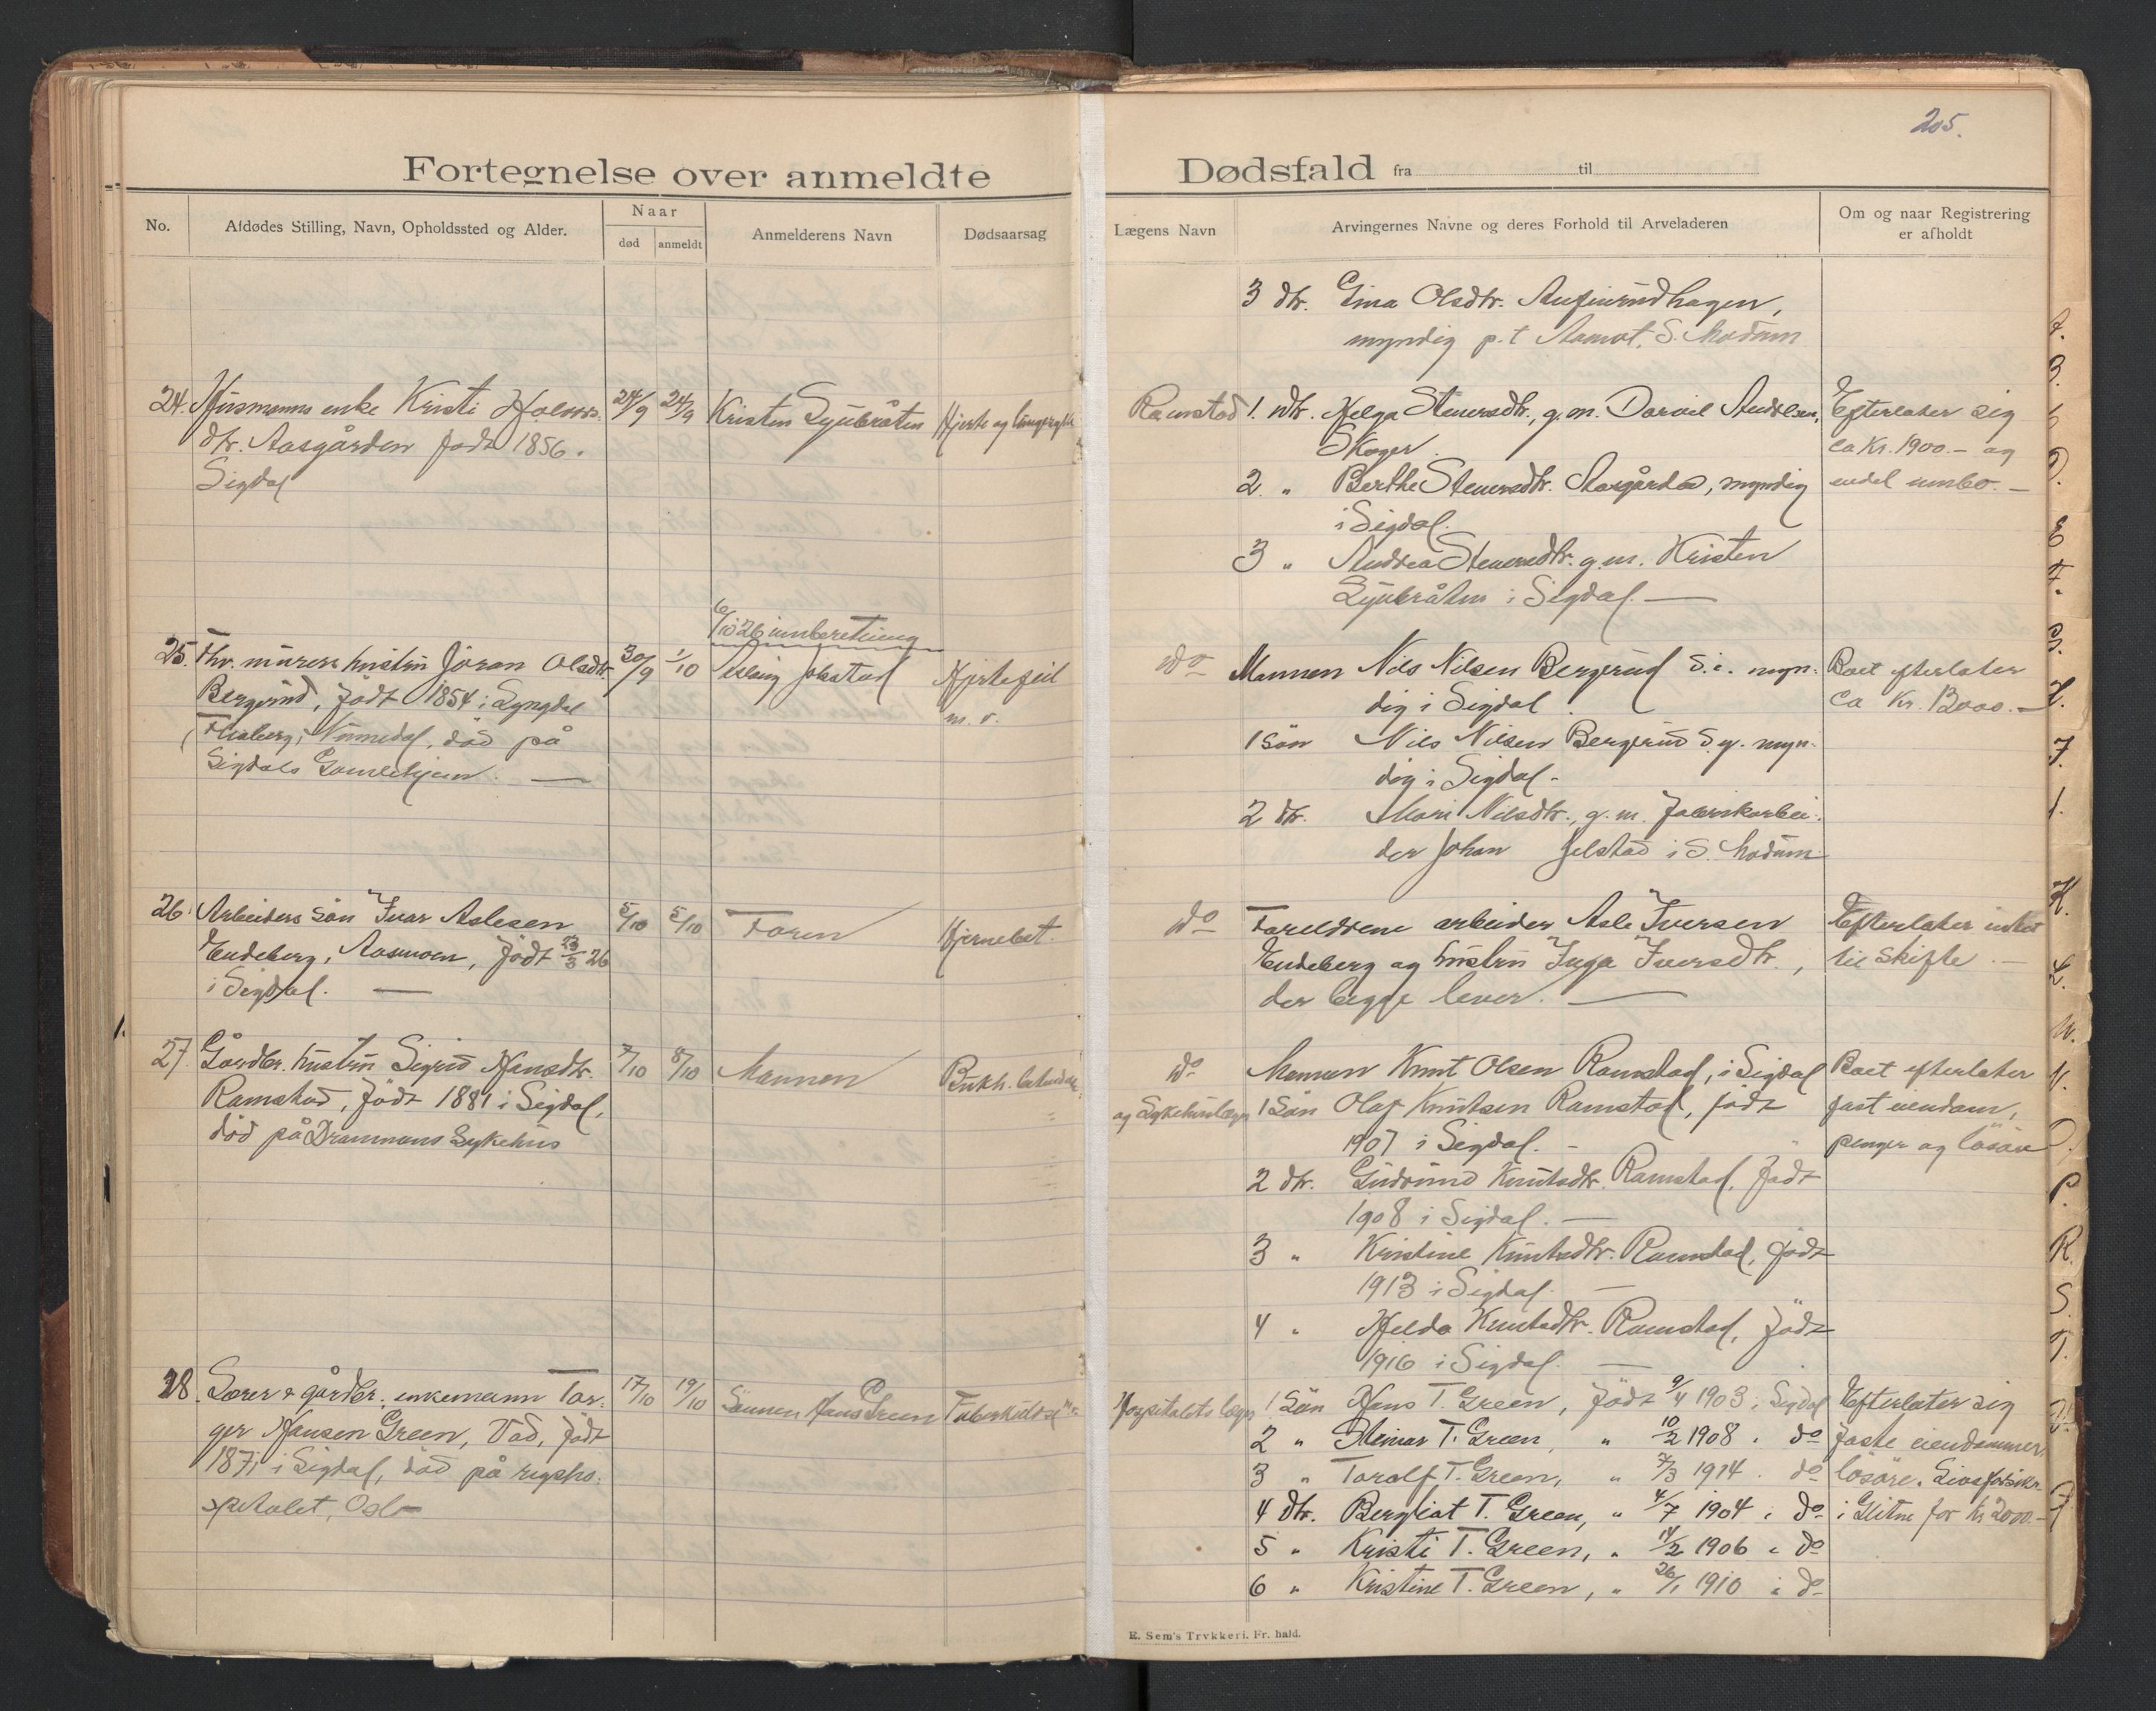 205.
Fortegnelse over anmeldte Dødsfald fra til
No.
Afdødes Stilling, Navn, Opholdssted og Alder.
Naar
død
anmeldt
Anmelderens Navn
Dødsaarsag
Lægens Navn
Arvingernes Navne og deres Forhold til Arveladeren
Om og naar Registrering
er afholdt
3 dtr. Gina Olsdtr.
myndig p.t Aamot, S. Modum
24. Husmanns enke Kristi
dtr. Aasgården født 1856.
Sigdal
24/9 24/9
Kristen Lyubråten
Hjerte og
Ramstad
1. dtr. Helga Steuersdtr., g.m.
Skoger.
2. " Berthe Steuersdtr. Aasgården, myndig
i Sigdal.
3 " Andrea Steuersdtr. g.m. Kristen
Lyubråten i Sigdal. —
Efterlater sig
ca Kr. 1900.- og
endel innbo. —
6/10 26 innberetning
25. Fhv. murers hustru Jöran Olsdtr.
Bergerud, født 1854 i Lyngdal
Flesberg, Numedal, död på
Sigdals Gamlehjem. —
30/9 1/10
Hjertefeil
m. v.
do
Mannen Nils Nilsen Bergerud d. e. myn-
dig i Sigdal.
1 sön Nils Nilsen Bergerud d.y. myn-
dig i Sigdal.-
2 dtr. Mari Nilsdtr., g. m. fabrikarbei-
der Johan Jelstad i S. Modum
Boet efterlater
Ca Kr. 13000.—
26. Arbeiders sön Ivar Aslesen
Endeberg, Aasmoen, født 23/3 26
i Sigdal. —
5/10 5/10
Faren
Hjernebet.
do
Foreldrene arbeider Asle Iversen
Endeberg og hustru Inga Iversdtr.,
der begge lever. —
Efterlater intet
til skifte. —
27. Gårdbr. hustru Sigrid Hansdtr.
Ramstad, født 1881 i Sigdal,
död på Drammens Sykehus
7/10 8/10
Mannen
Bukh. betendelse
do
og Sykehuslægen
Mannen Knut Olsen Ramstad, i Sigdal
1 Sön Olaf Knutsen Ramstad, født
1907 i Sigdal. -
2 dtr. Gudrund Knutsdtr. Ramstad, født
1908 i Sigdal. —
3 " Kristine Knutsdtr. Ramstad, født
1913 i Sigdal. —
4 " Helda Knutsdtr. Ramstad, født
1916 i Sigdal. —
Boet efterlater
fast eiendom,
penger og lösöre
28. Lærer & gårdbr. enkemann Tor-
ger Hansen Green, Vad, født
1871 i Sigdal, död på rigsho-
spitalet, Oslo
17/10 19/10
Sönnen Hans Green
Tuberkulose
Hospitalets læge
1 Sön Hans T. Green, født 9/4 1903 i Sigdal
2 " Steinar T. Green, " 10/2 1908 " do
3 " Toralf T. Green, " 7/3 1914 " do
4 dtr. Bergliot T. Green, " 4/7 1904 i do
5 " Kristi T. Green, " 14/2 1906 i do
6 " Kristine T. Green, " 26/1 1910 i do
Efterlater sig
faste eiendommer,
lösöre. Livsforsikr.
i Glitne for kr 2000.-
E. Sem's Trykkeri. Fr. hald.